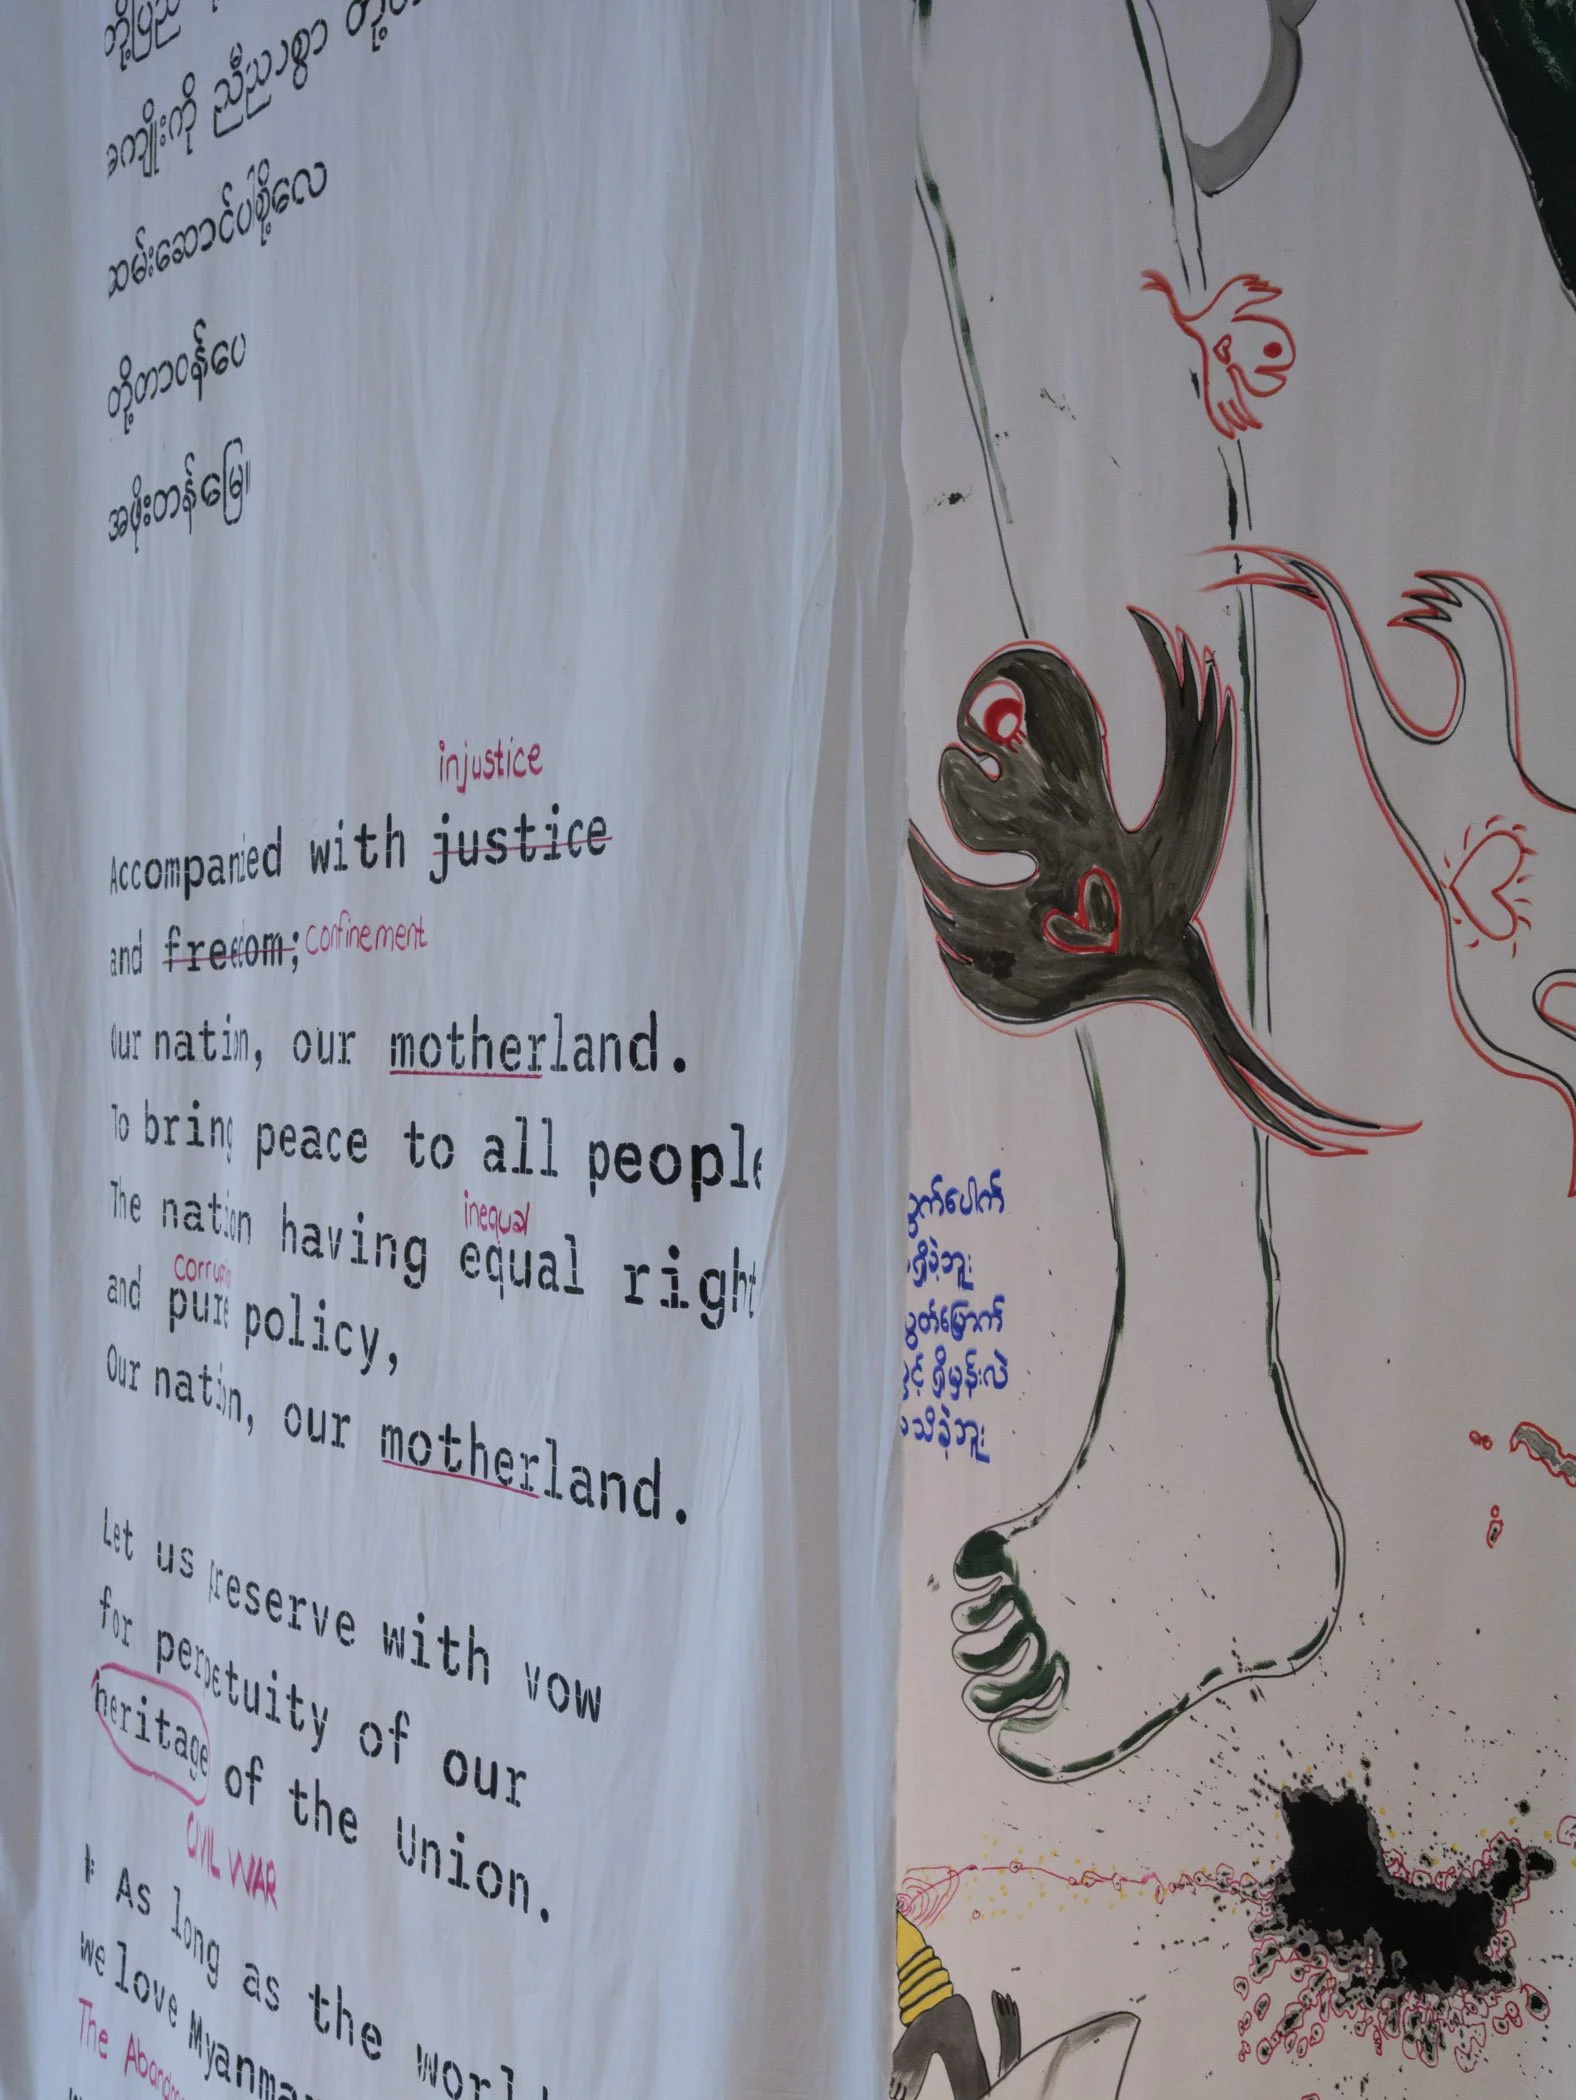 အကျိုးကို ညီညာစွာ
ထမ်းဆောင်ပါစို့လေ
တို့တာဝန်ပေ
အဖိုးတန်မြေ။
injustice
Accompanied with justice
and freedom; confinement
Our nation, our motherland.
To bring peace to all people
inequal
The nation having equal right
and pure policy,
Our nation, our motherland.
Let us preserve with vow
for perpetuity of our
heritage of the Union.
CIVIL WAR
As long as the world
we love Myanmar
The
ရှိခဲ့ဘူး
ရှိမှန်းလဲ
မသိခဲ့ဘူး